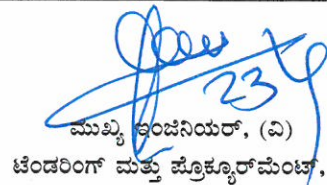 23
ಮುಖ್ಯ ಇಂಜಿನಿಯರ್, (ವಿ)
ಟೆಂಡರಿಂಗ್ ಮತ್ತು ಪ್ರೊಕ್ಯೂರ್‌ಮೆಂಟ್,